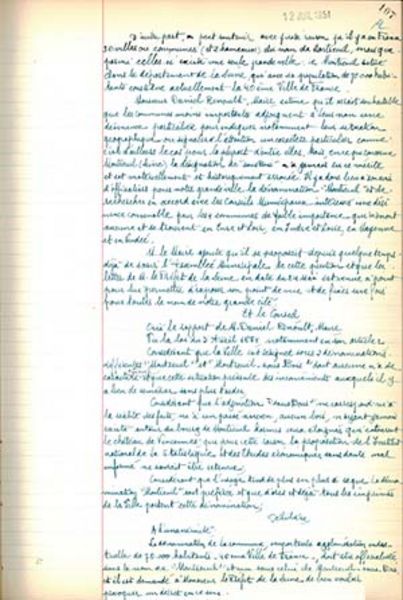 12 JUIL 1951
107
D'autre part, on peut soutenir avec juste raison qu'il y a en France
20 villes ou communes (et 2 hameaux) du nom de Montreuil, mais que
parmi celles-ci existe une seule grande ville : ce Montreuil situé
dans le département de la Seine, qui avec sa population de 70 000 habi-
tants constitue actuellement la 40ème Ville de France.
Monsieur Daniel Renoult, Maire, estime qu'il serait souhaitable
que les communes moins importantes adjoignent à leur nom une
dénomination particulière pour indiquer notamment leur situation
géographique ou
c'est d'ailleurs le cas pour la plupart d'entre elles, mais en ce qui concerne
Montreuil (Seine) la désignation de "sous Bois" n'a jamais eu ce mérite
et est matériellement et historiquement erronée. Il y a donc lieu
d'officialiser pour notre grande ville la dénomination "Montreuil" et de
rechercher en accord avec les Conseils Municipaux intéressés une dési-
gnation convenable pour les communes de faible importance qui n'en ont
aucune et se trouvent en Eure et Loir, en Indre et Loire, en Mayenne
et en Vendée.
M. le Maire ajoute qu'il se proposait depuis quelque temps
déjà de saisir l'Assemblée Municipale de cette question et que la
lettre de M. le Préfet de la Seine, en date du
lui permettre d'exposer son point de vue et de fixer une fois
pour toutes le nom de notre grande cité.
Et le Conseil
Ouï le rapport de M. Daniel Renoult, Maire
Vu la loi du 5 Avril 1884, notamment en son article 2
Considérant que la Ville est désignée sous 2 dénominations
différentes "Montreuil" et "Montreuil sous Bois" dont aucune n'a de
caractère et que cette situation présente des inconvénients auxquels il y
a lieu de remédier sans plus tarder
Considérant que l'adjonction "sous Bois" ne correspond ni à
la réalité des faits, ni à un passé ancien, aucun bois, n'ayant jamais
existé autour du bourg de Montreuil hormis ceux éloignés qui entourent
le château de Vincennes que pour cette raison la proposition de l'Institut
national de la Statistique et des Etudes économiques sans doute mal
informé ne saurait être retenue,
Considérant que l'usage tend de plus en plus à ce que la déno-
mination "Montreuil" soit préférée et que d'ores et déjà tous les imprimés
de la Ville portent cette dénomination,
Délibère
A l'unanimité :
La dénomination de la commune, importante agglomération indus-
trielle de 70.000 habitants, 40ème Ville de France, doit être officialisée
sous le nom de "Montreuil" et non sous celui de Montreuil sous Bois,
et il est demandé à Monsieur le Préfet de la Seine de bien vouloir
provoquer un décret en ce sens.